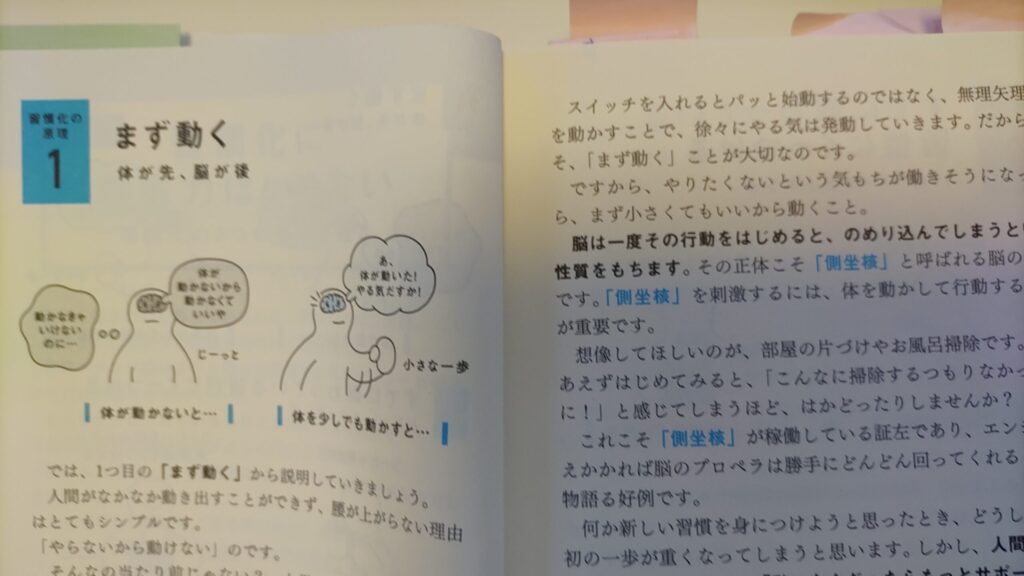 習慣化の
原理
1
まず動く
体が先、脳が後
動かなきゃ
いけない
のに…
体が
動かないから
動かなくて
いいや
じーっと
あ、
体が動いた!
やる気だすか!
小さな一歩
体が動かないと…
体を少しでも動かすと…
では、1つ目の「まず動く」から説明していきましょう。
人間がなかなか動き出すことができず、腰が上がらない理由
はとてもシンプルです。
「やらないから動けない」のです。
そんなの当たり前じゃない?
スイッチを入れるとパッと始動するのではなく、無理矢理
を動かすことで、徐々にやる気は発動していきます。だから
そ、「まず動く」ことが大切なのです。
ですから、やりたくないという気もちが働きそうになっ
ら、まず小さくてもいいから動くこと。
脳は一度その行動をはじめると、のめり込んでしまうと
性質をもちます。その正体こそ「側坐核」と呼ばれる脳の
です。「側坐核」を刺激するには、体を動かして行動する
が重要です。
想像してほしいのが、部屋の片づけやお風呂掃除です。
あえずはじめてみると、「こんなに掃除するつもりなかっ
に!」と感じてしまうほど、はかどったりしませんか?
これこそ「側坐核」が稼働している証左であり、エン
えかかれば脳のプロペラは勝手にどんどん回ってくれる
物語る好例です。
何か新しい習慣を身につけようと思ったとき、どうし
初の一歩が重くなってしまうと思います。しかし、人間